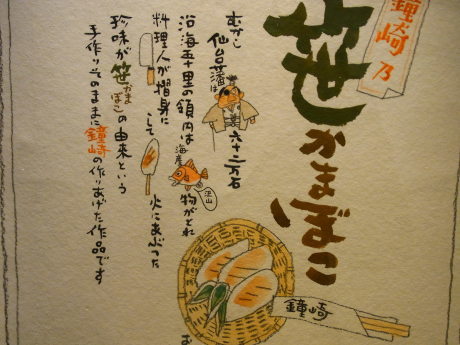 鐘崎乃
笹かまぼこ
むかし 仙台藩は 六十二万石
沿海五十里の領内は 海産 物がとれ
沢山
料理人が摺身に して 火にあぶった
珍味が笹かまぼこの由来という
手作りそのままに鐘崎の作りあげた作品です
鐘崎
お